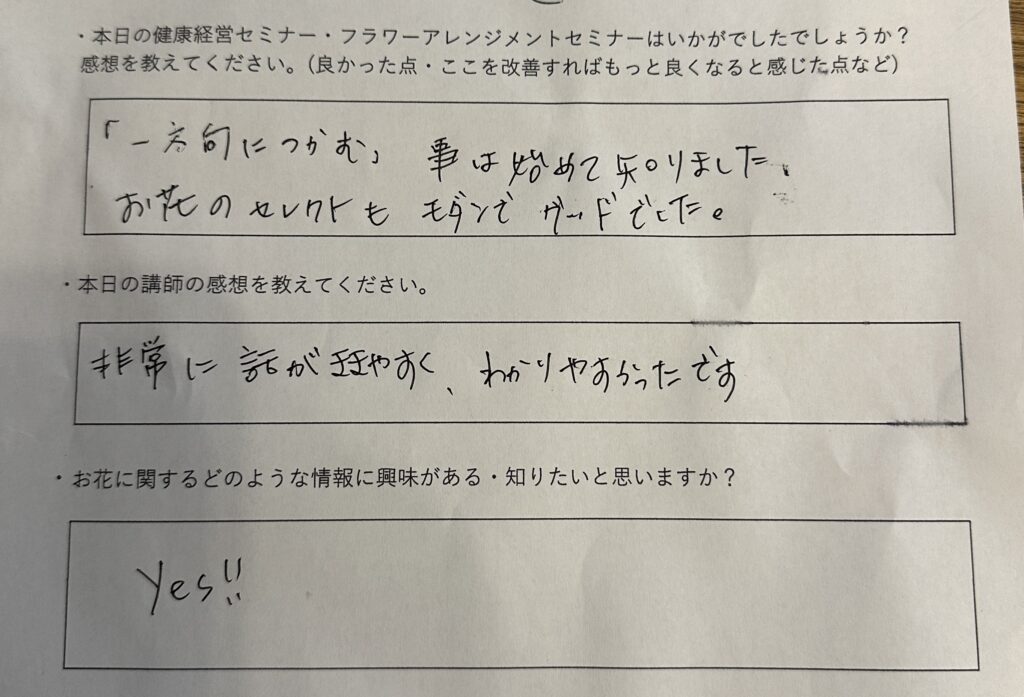 ・本日の健康経営セミナー・フラワーアレンジメントセミナーはいかがでしたでしょうか？
感想を教えてください。（良かった点・ここを改善すればもっと良くなると感じた点など）
「一方向につかむ」 事は始めて知りました、
お花のセレクトも モダンで グッドでした。
・本日の講師の感想を教えてください。
非常に 話が 聞きやすく、わかりやすかったです
・お花に関するどのような情報に興味がある・知りたいと思いますか？
Yes!!